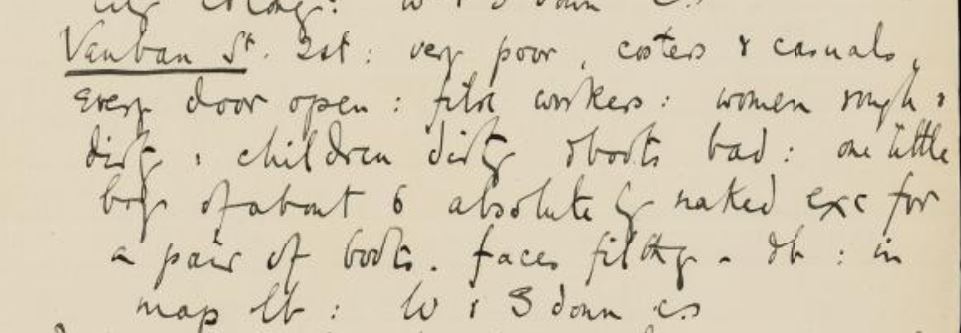 W & S down
Vauban St. 2st: very poor, costers & casuals,
every door open: workers: women rough &
dirty, children dirty & boots bad: one little
boy of about 6 absolutely naked exc for
a pair of boots. faces filthy - db: in
map lb: W & S down